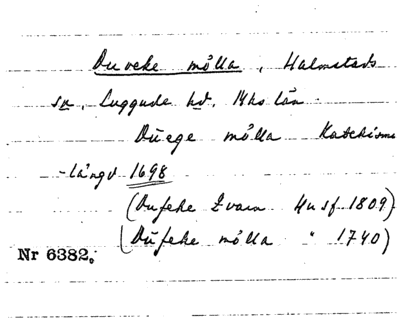 Duveke mölla, Halmstads
sn, Luggude hd, Mhs län.
Düege mölla Katekism
-längd 1698
(Dufeke Qvarn Husf. 1809)
(Düfeke mölla " 1740)
Nr 6382.